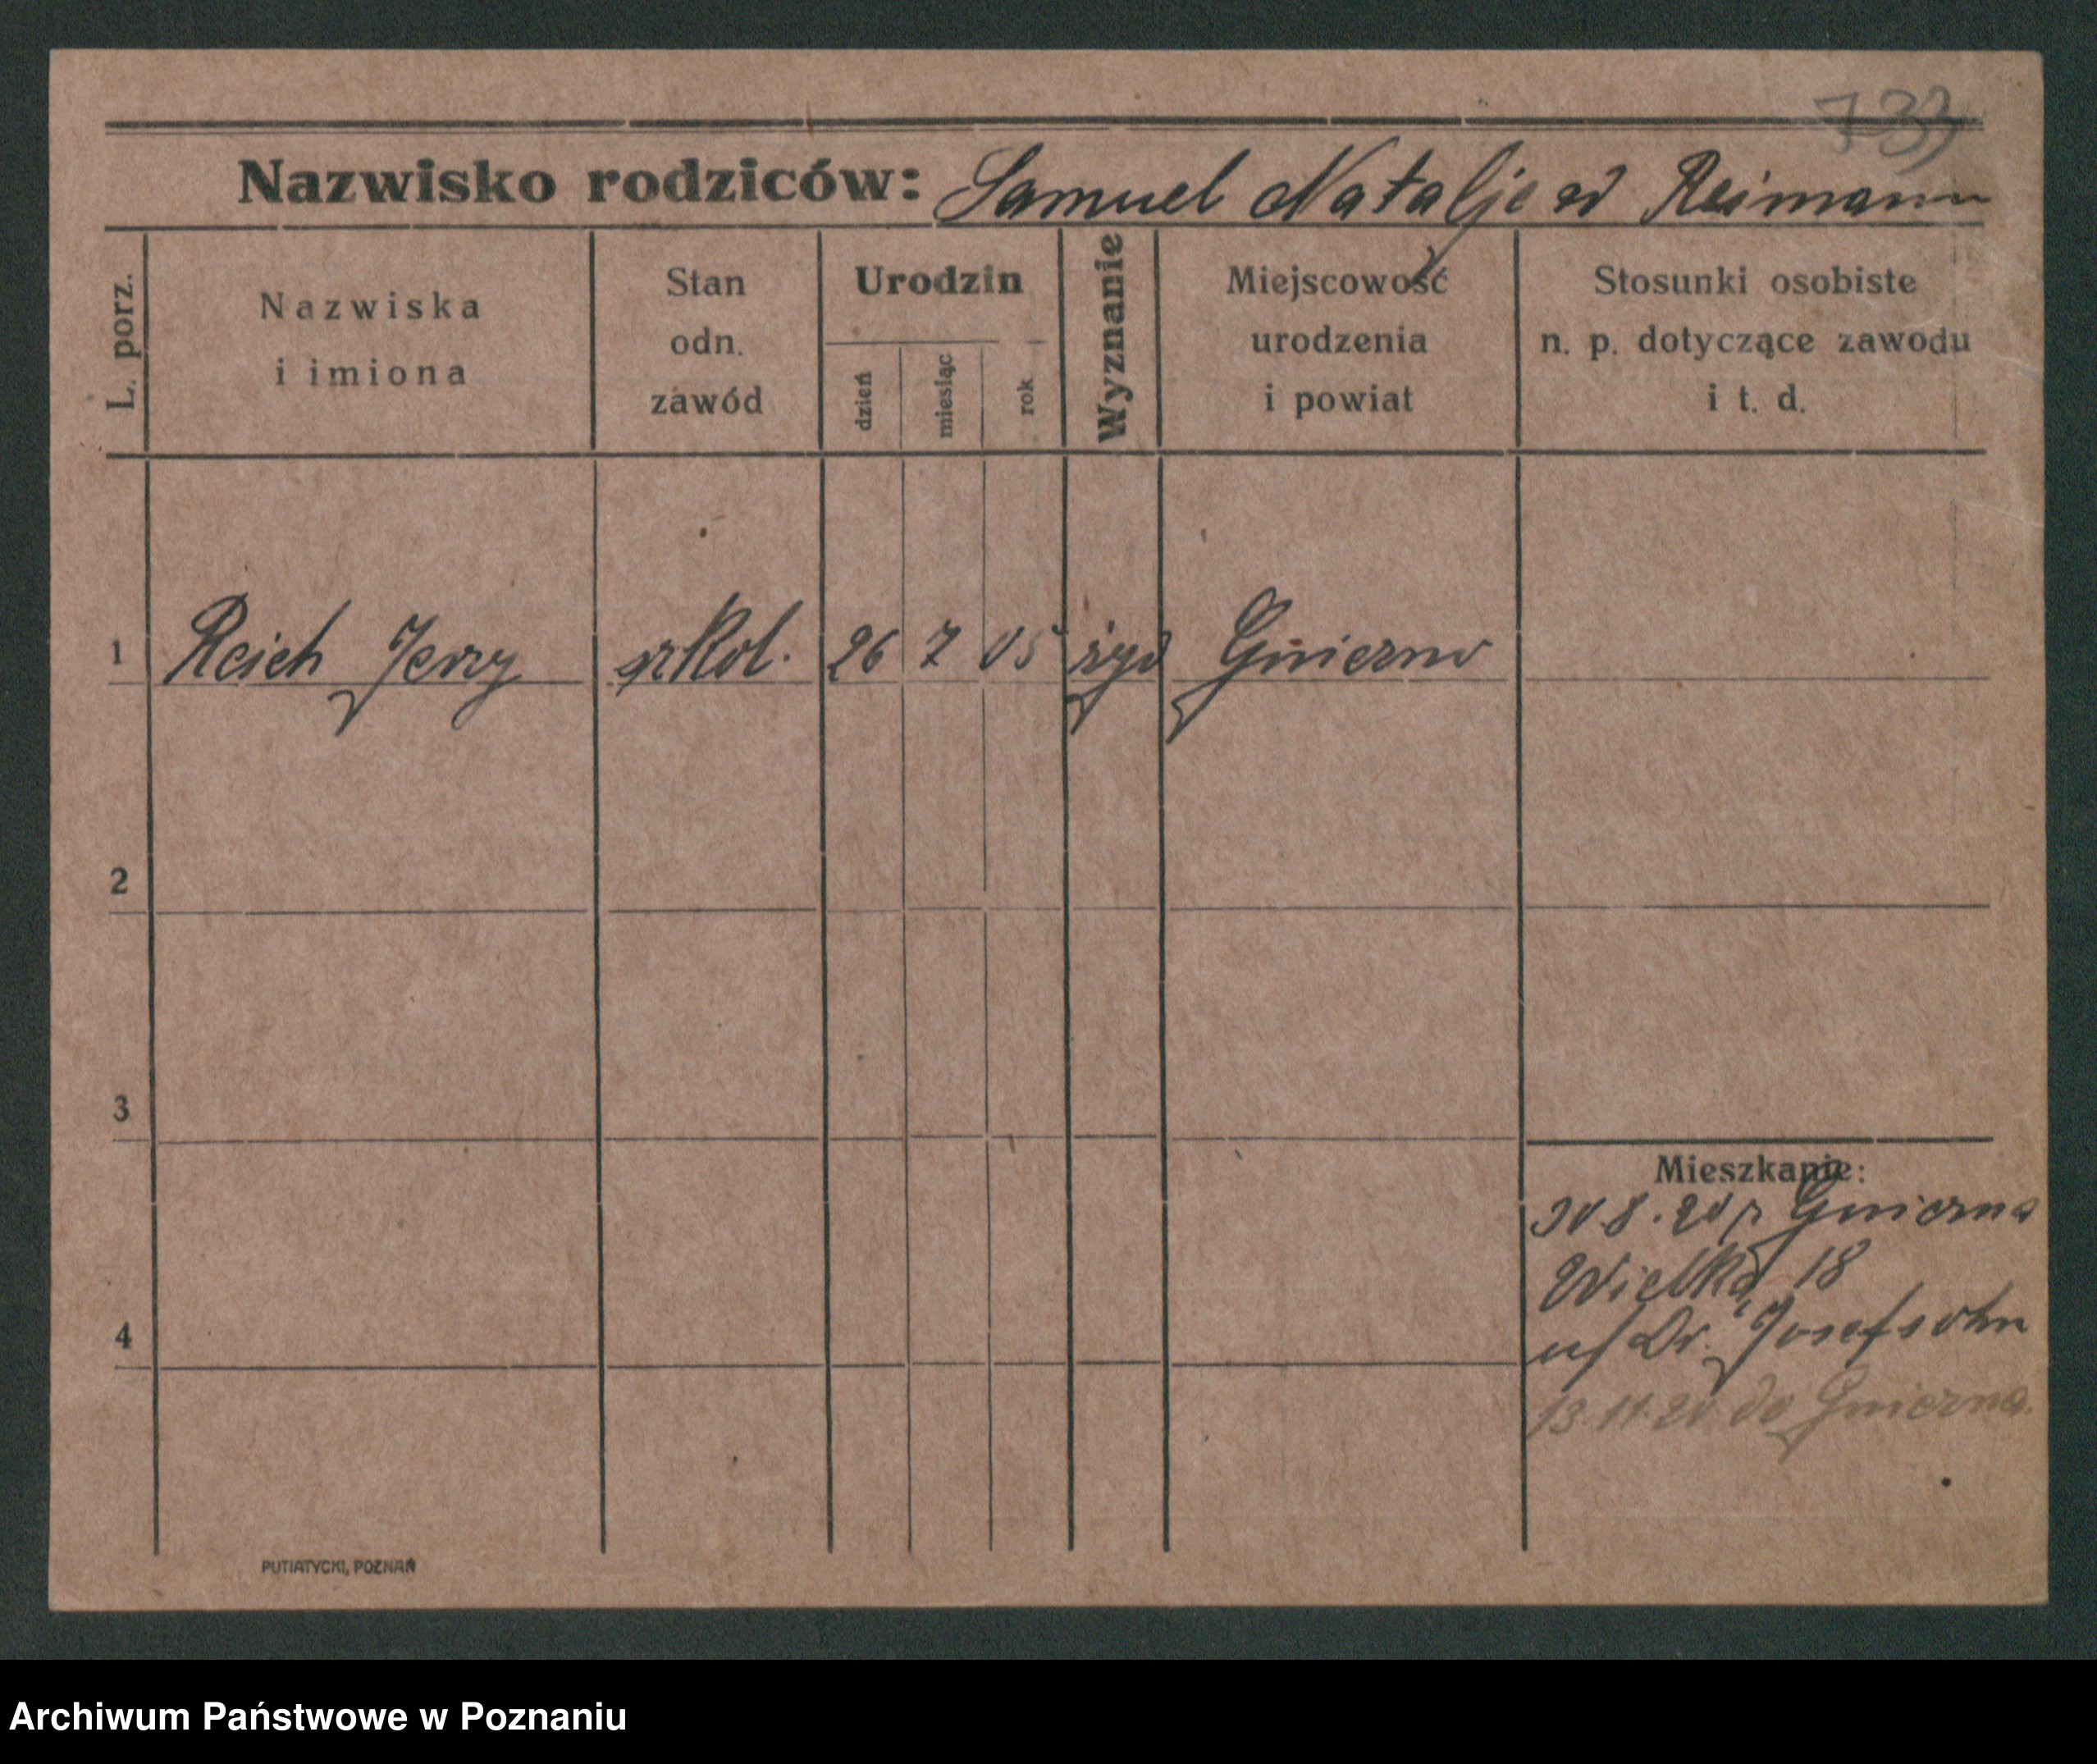 733
Nazwisko rodziców: Samuel Natalje zd Reimann
L. porz.
Nazwiska
i imiona
Stan
odn.
zawód
Urodzin
dzień
miesiąc
rok
Wyznanie
Miejscowość
urodzenia
i powiat
Stosunki osobiste
n. p. dotyczące zawodu
i t. d.
1 Reich Jerzy szkol. 26 7 05 żyd Gniezno
2
3
Mieszkanie:
30.8.20 z Gniezna
Wielka 18
u/ Dr. Josefsohn
4
13.11.20 do Gniezna.
PUTIATYCKI, POZNAŃ
Archiwum Państwowe w Poznaniu